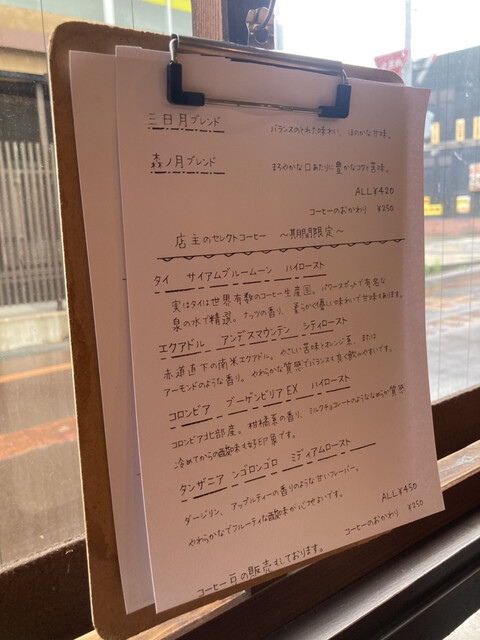 三日月ブレンド
バランスのトれた味わい、ほのかな甘味。
森ノ月ブレンド
まろやかな口あたりに豊かなコクと苦味。
ALL¥420
コーヒーのおかわり ¥250
店主のセレクトコーヒー ～期間限定～
タイ サイアムブルームーン ハイロースト
実はタイは世界有数のコーヒー生産国。パワースポットで有名な
泉の水で精選。ナッツの香り、柔らかく優しい味わいで甘味もあります。
エクアドル アンデスマウンテン シティロースト
赤道直下の南米エクアドル。やさしい苦味とオレンジ系、または
アーモンドのような香り。やわらかな質感でバランスも良く飲みやすいです。
コロンビア ブーゲンビリアEX ハイロースト
コロンビア北部産。柑橘系の香り、ミルクチョコレートのようななめらか質感
冷めてからの酸味も好印象です。
タンザニア ンゴロンゴロ ミディアムロースト
ダージリン、アップルティーの香りのような甘いフレーバー。
やわらかなでフルーティな酸味が心地よいです。
ALL¥450
コーヒーのおかわり ¥250
コーヒー豆の販売もしております。